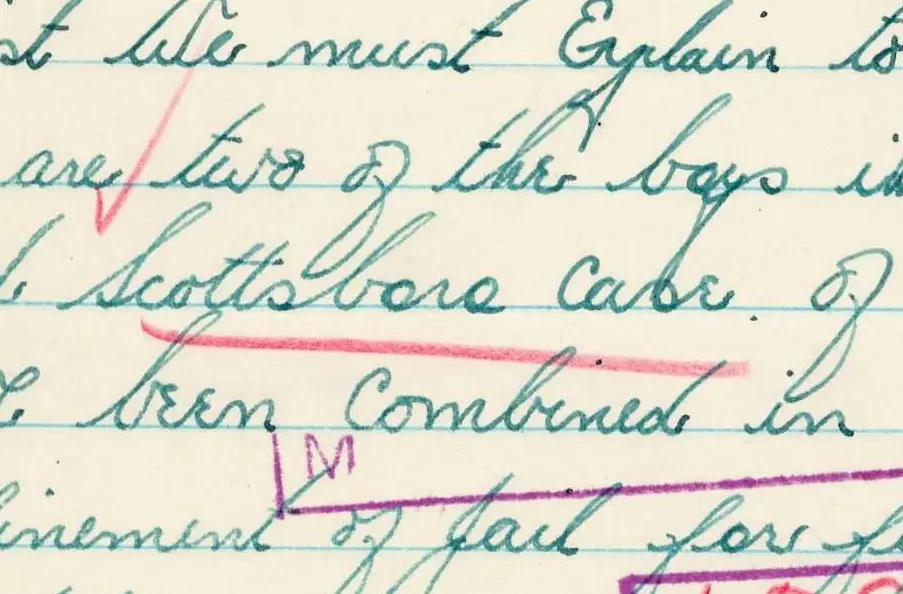 st We must Explain to
are two of the boys in
Scottsboro Case of
been Combined in
M
inement of Jail for